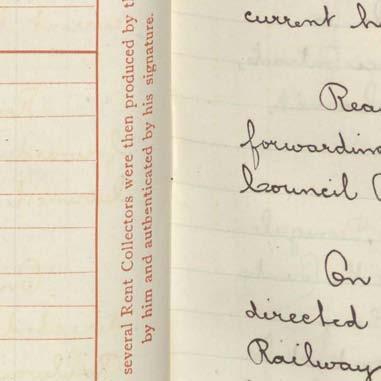 several Rent Collectors were then produced by
by him and authenticated by his signature.
current
forwarding
Council
On
directed
Railway